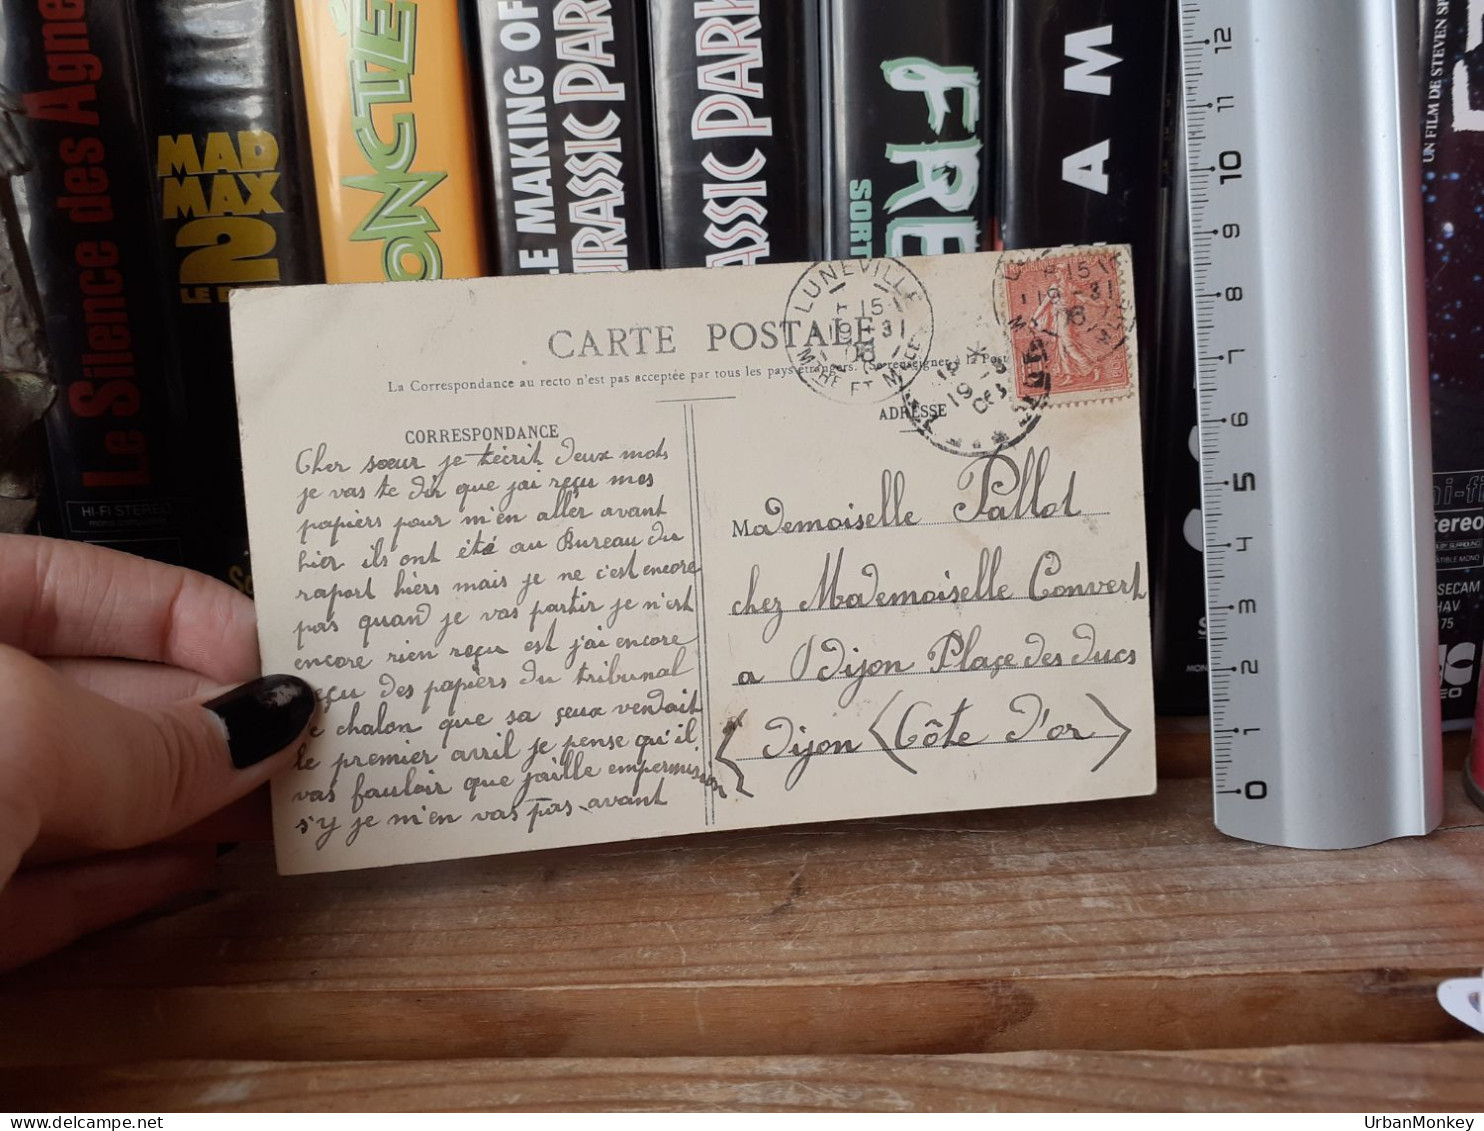 Le Silence des Agne
HI-FI STEREO
MAD
MAX
2
LE MAKING OF
JURASSIC PARK
JURASSIC PARK
FRE
SORT
A M
UN FILM DE STEVEN SP
hi-fi
stereo
SECAM
12
11
10
9
8
7
6
5
4
3
2
1
0
CARTE POSTALE
La Correspondance au recto n'est pas acceptée par tous les pays étrangers. (Se renseigner à la Poste
CORRESPONDANCE
ADRESSE
LUNEVILLE
15
19 - 31
06
MRTHE ET MLLE
Cher sœur je técrit deux mots
je vas te dir que jai reçu mes
papiers pour m'en aller avant
hier ils ont été au Bureau du
raport hiers mais je ne c'est encore
pas quand je vas partir je n'est
encore rien reçu est j'ai encore
reçu des papiers du tribunal
de chalon que sa ceux vendait
le premier avril je pense qu'il
vas fauloir que jaille empermission
s'y je m'en vas pas avant
Mademoiselle Pallot
chez Mademoiselle Convert
a Dijon Place des ducs
Dijon (Côte d'or)
UrbanMonkey